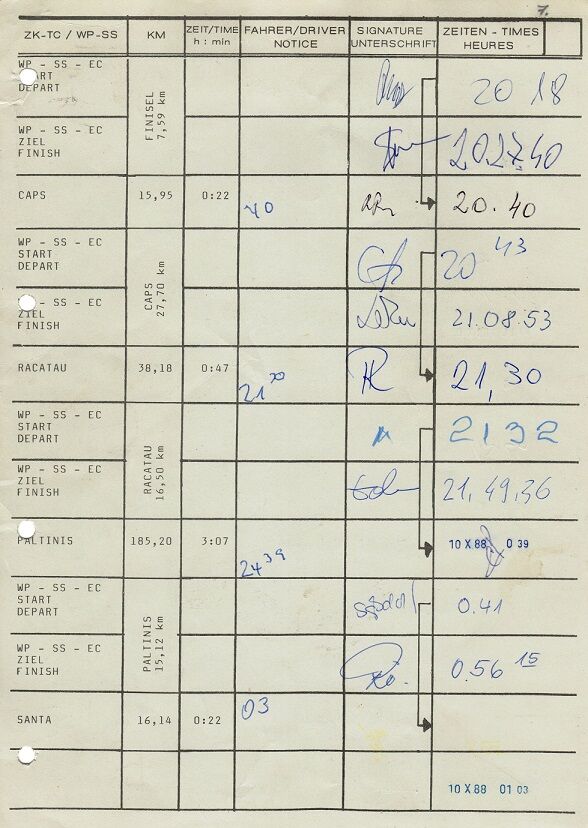 7.
ZK-TC / WP-SS KM ZEIT/TIME h : min FAHRER/DRIVER NOTICE SIGNATURE UNTERSCHRIFT ZEITEN - TIMES HEURES
WP - SS - EC
START
DEPART 20 18
FINISEL
7,59 km
WP - SS - EC
ZIEL
FINISH 20.27.40
CAPS 15,95 0:22 40 20.40
WP - SS - EC
START
DEPART 20 43
CAPS
27,70 km
WP - SS - EC
ZIEL
FINISH 21.08.53
RACATAU 38,18 0:47 21 30 21,30
WP - SS - EC
START
DEPART 2132
RACATAU
16,50 km
WP - SS - EC
ZIEL
FINISH 21,49,36
PALTINIS 185,20 3:07 24 39 10 X 88 0 39
WP - SS - EC
START
DEPART 0.41
PALTINIS
15,12 km
WP - SS - EC
ZIEL
FINISH 0.56 15
SANTA 16,14 0:22 03
10 X 88 01 03